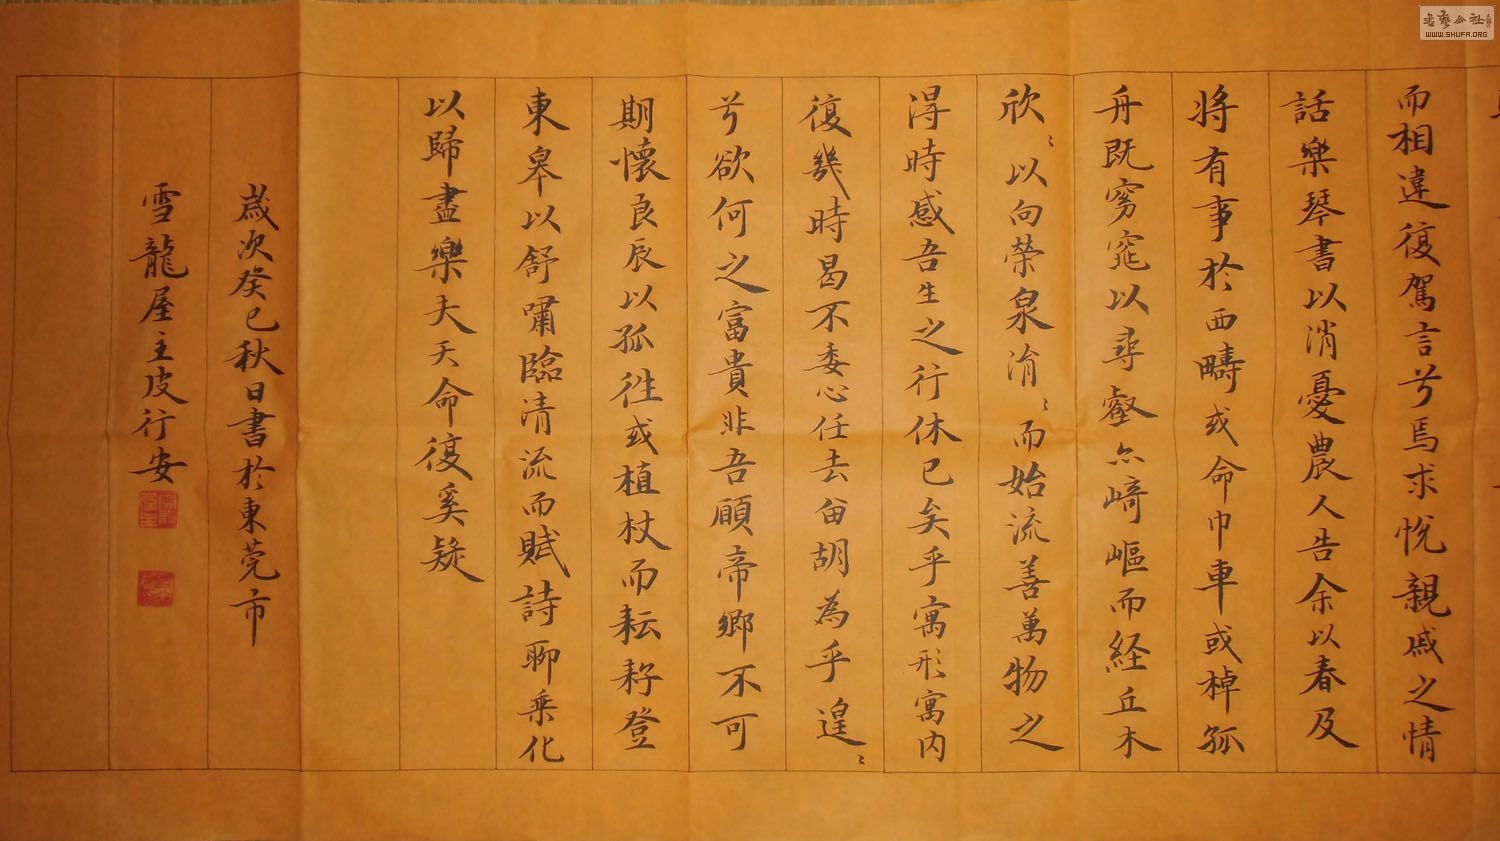 而相違復駕言兮焉求悅親戚之情
話樂琴書以消憂農人告余以春及
将有事於西疇或命巾車或棹孤
舟既窈窕以尋壑亦崎嶇而経丘木
欣〻以向榮泉涓〻而始流善萬物之
得時感吾生之行休已矣乎寓形寓内
復幾時曷不委心任去留胡為乎遑〻
兮欲何之富貴非吾願帝鄉不可
期懷良辰以孤往或植杖而耘耔登
東皋以舒嘯臨清流而賦詩聊乘化
以歸盡樂夫天命復奚疑
歲次癸巳秋日書於東莞市
雪龍屋主皮行安
書藝公社
WWW.SHUFA.ORG